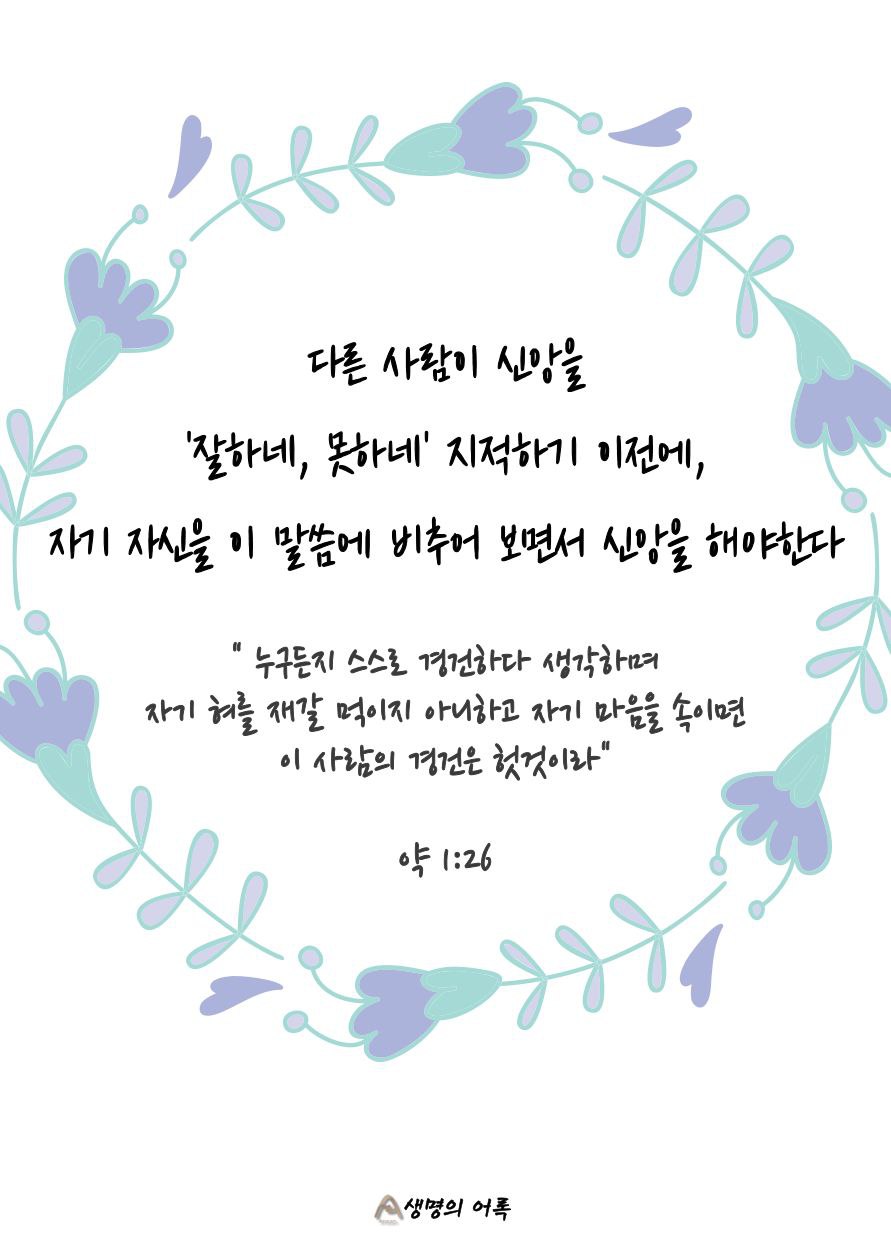 다른 사람이 신앙을
'잘하네, 못하네' 지적하기 이전에,
자기 자신을 이 말씀에 비추어 보면서 신앙을 해야한다
" 누구든지 스스로 경건하다 생각하며
자기 혀를 재갈 먹이지 아니하고 자기 마음을 속이면
이 사람의 경건은 헛것이라"
약 1:26
생명의 어록